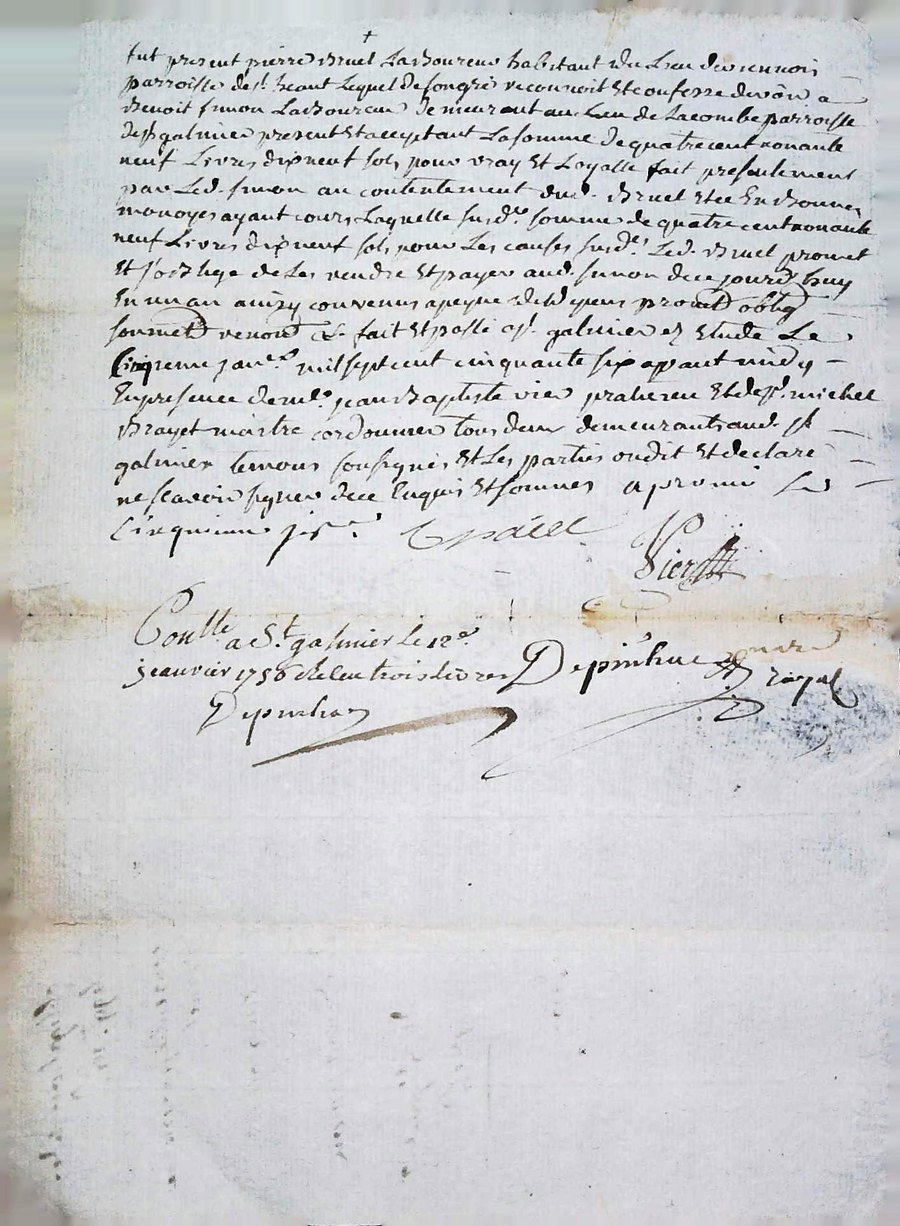 fut present pierre Bruel Laboureur habitant du Lieu de
parroisse de st. heant Lequel de son gré reconnoit Et confesse devoir a
Benoit simon Laboureur demeurant au Lieu de Lacombe parroisse
de st galmier present Et acceptant La somme de quatre cent nonante
neuf Livres dixneuf sols pour vray Et Loyalle fait presentement
par Led. simon au contentement dud. Bruel Et ce En bonnes
monoyes ayant cours Laquelle susd.e somme de quatre cent nonante
neuf Livres dixneuf sols pour Les causes susd.es Led. Bruel promet
Et s'oblige de Les rendre Et payer aud. simon de ce jourd'huy
En un an ainsy convenus a peyne de depens promett oblig
soumett renont &c. fait Et passé a st. galmier Etude Le
cinqieme janv.er mil sept cent cinquante six avant midy
En presence de m.e jean Baptiste vier praticien Et de st. michel
Brayet maitre cordonnier tous deux demeurants aud. st
galmier temoins soussignés Et Les parties ont dit Et declaré
ne scavoir signer de ce Enquis Et sommés
Vier
Conlle a St. galmier le 12e
janvier 1756 trois Livres Depinhac
Depinhac